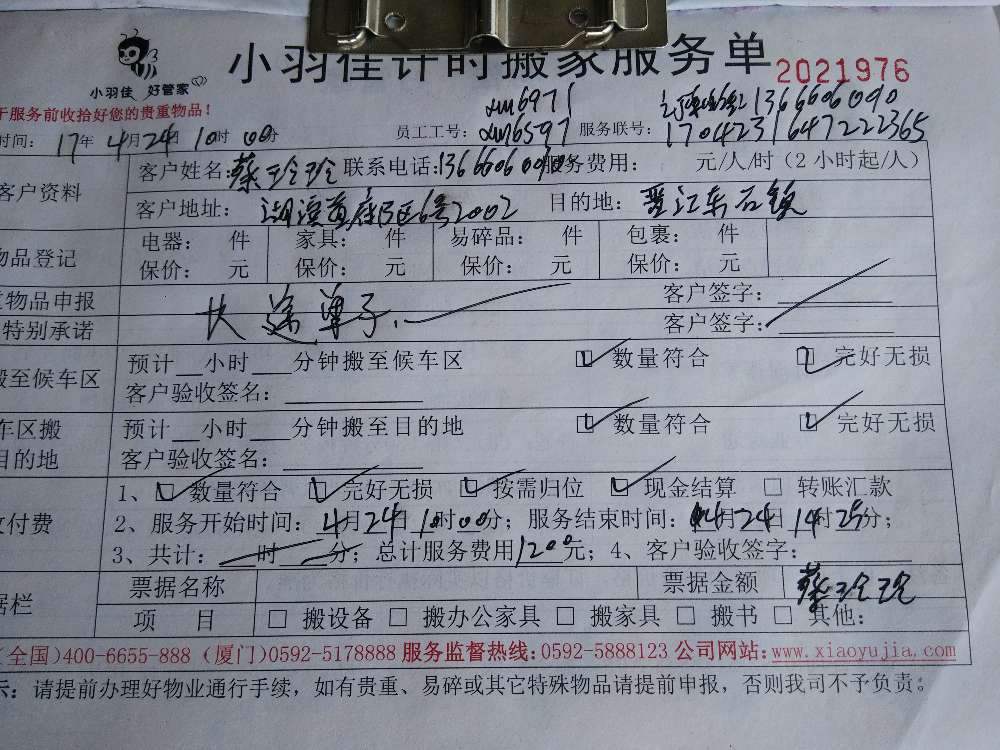 小羽佳计时搬家服务单 2021976
小羽佳 好管家
于服务前收拾好您的贵重物品！
时间： 17年 4月 24日 10时 00分 员工工号： xm6971 xm6597 服务联号： 13666060090 170423164722365
客户资料 客户姓名：蔡玲玲 联系电话：13666060090 服务费用： 元/人/时（2小时起/人）
客户地址： 湖滨首府B区6号2002 目的地： 晋江东石镇
物品登记 电器： 件 家具： 件 易碎品： 件 包裹： 件
保价： 元 保价： 元 保价： 元 保价： 元
物品申报 长途单子. 客户签字：
特别承诺 客户签字：
搬至候车区 预计 小时 分钟搬至候车区 数量符合 完好无损
客户验收签名：
车区搬 预计 小时 分钟搬至目的地 数量符合 完好无损
目的地 客户验收签名：
付费 1、 数量符合 完好无损 按需归位 现金结算 转账汇款
2、服务开始时间：4月24日10时00分；服务结束时间：4月24日14时25分；
3、共计： 时 分；总计服务费用1200元；4、客户验收签字：
据栏 票据名称 票据金额 蔡玲玲
项 目 搬设备 搬办公家具 搬家具 搬书 其他：
(全国)400-6655-888（厦门)0592-5178888 服务监督热线：0592-5888123 公司网站：www.xiaoyujia.com
示：请提前办理好物业通行手续，如有贵重、易碎或其它特殊物品请提前申报，否则我司不予负责。